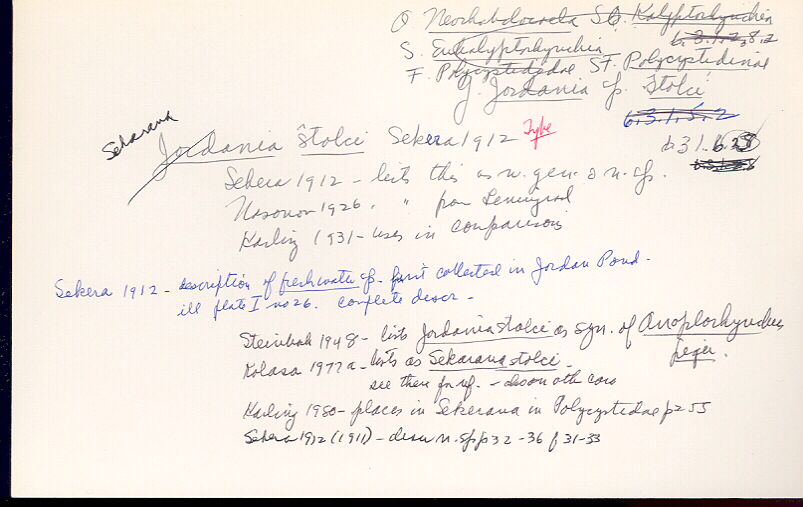 O. Neorhabdocoela SO. Kalyptorhynchia
6.3.1.2.8.2
S. Eukalyptorhynchia
F. Polycystididae SF. Polycystidinae
G. Jordania sp. Štolci
6.3.1.5.2
Sekerana
Jordania štolci Sekera 1912 Type
6 3 1. 6.28
Sekera 1912 – lists this as n. gen. & n. sp.
Nasonov 1926. " from Leningrad
Karling 1931 – uses in comparison
Sekera 1912 – description of freshwater sp. first collected in Jordan Pond.
ill plate I no 26. complete descr –
Steinböck 1948 – lists Jordania stolci as syn. of Anoplorhynchus
piger.
Kolasa 1977a – lists as Sekerana stolci.
see there for ref. – desc on other card
Karling 1980 – places in Sekerana in Polycystidae p 255
Sekera 1912 (1911) – descr n. sp p 32-36 f 31-33